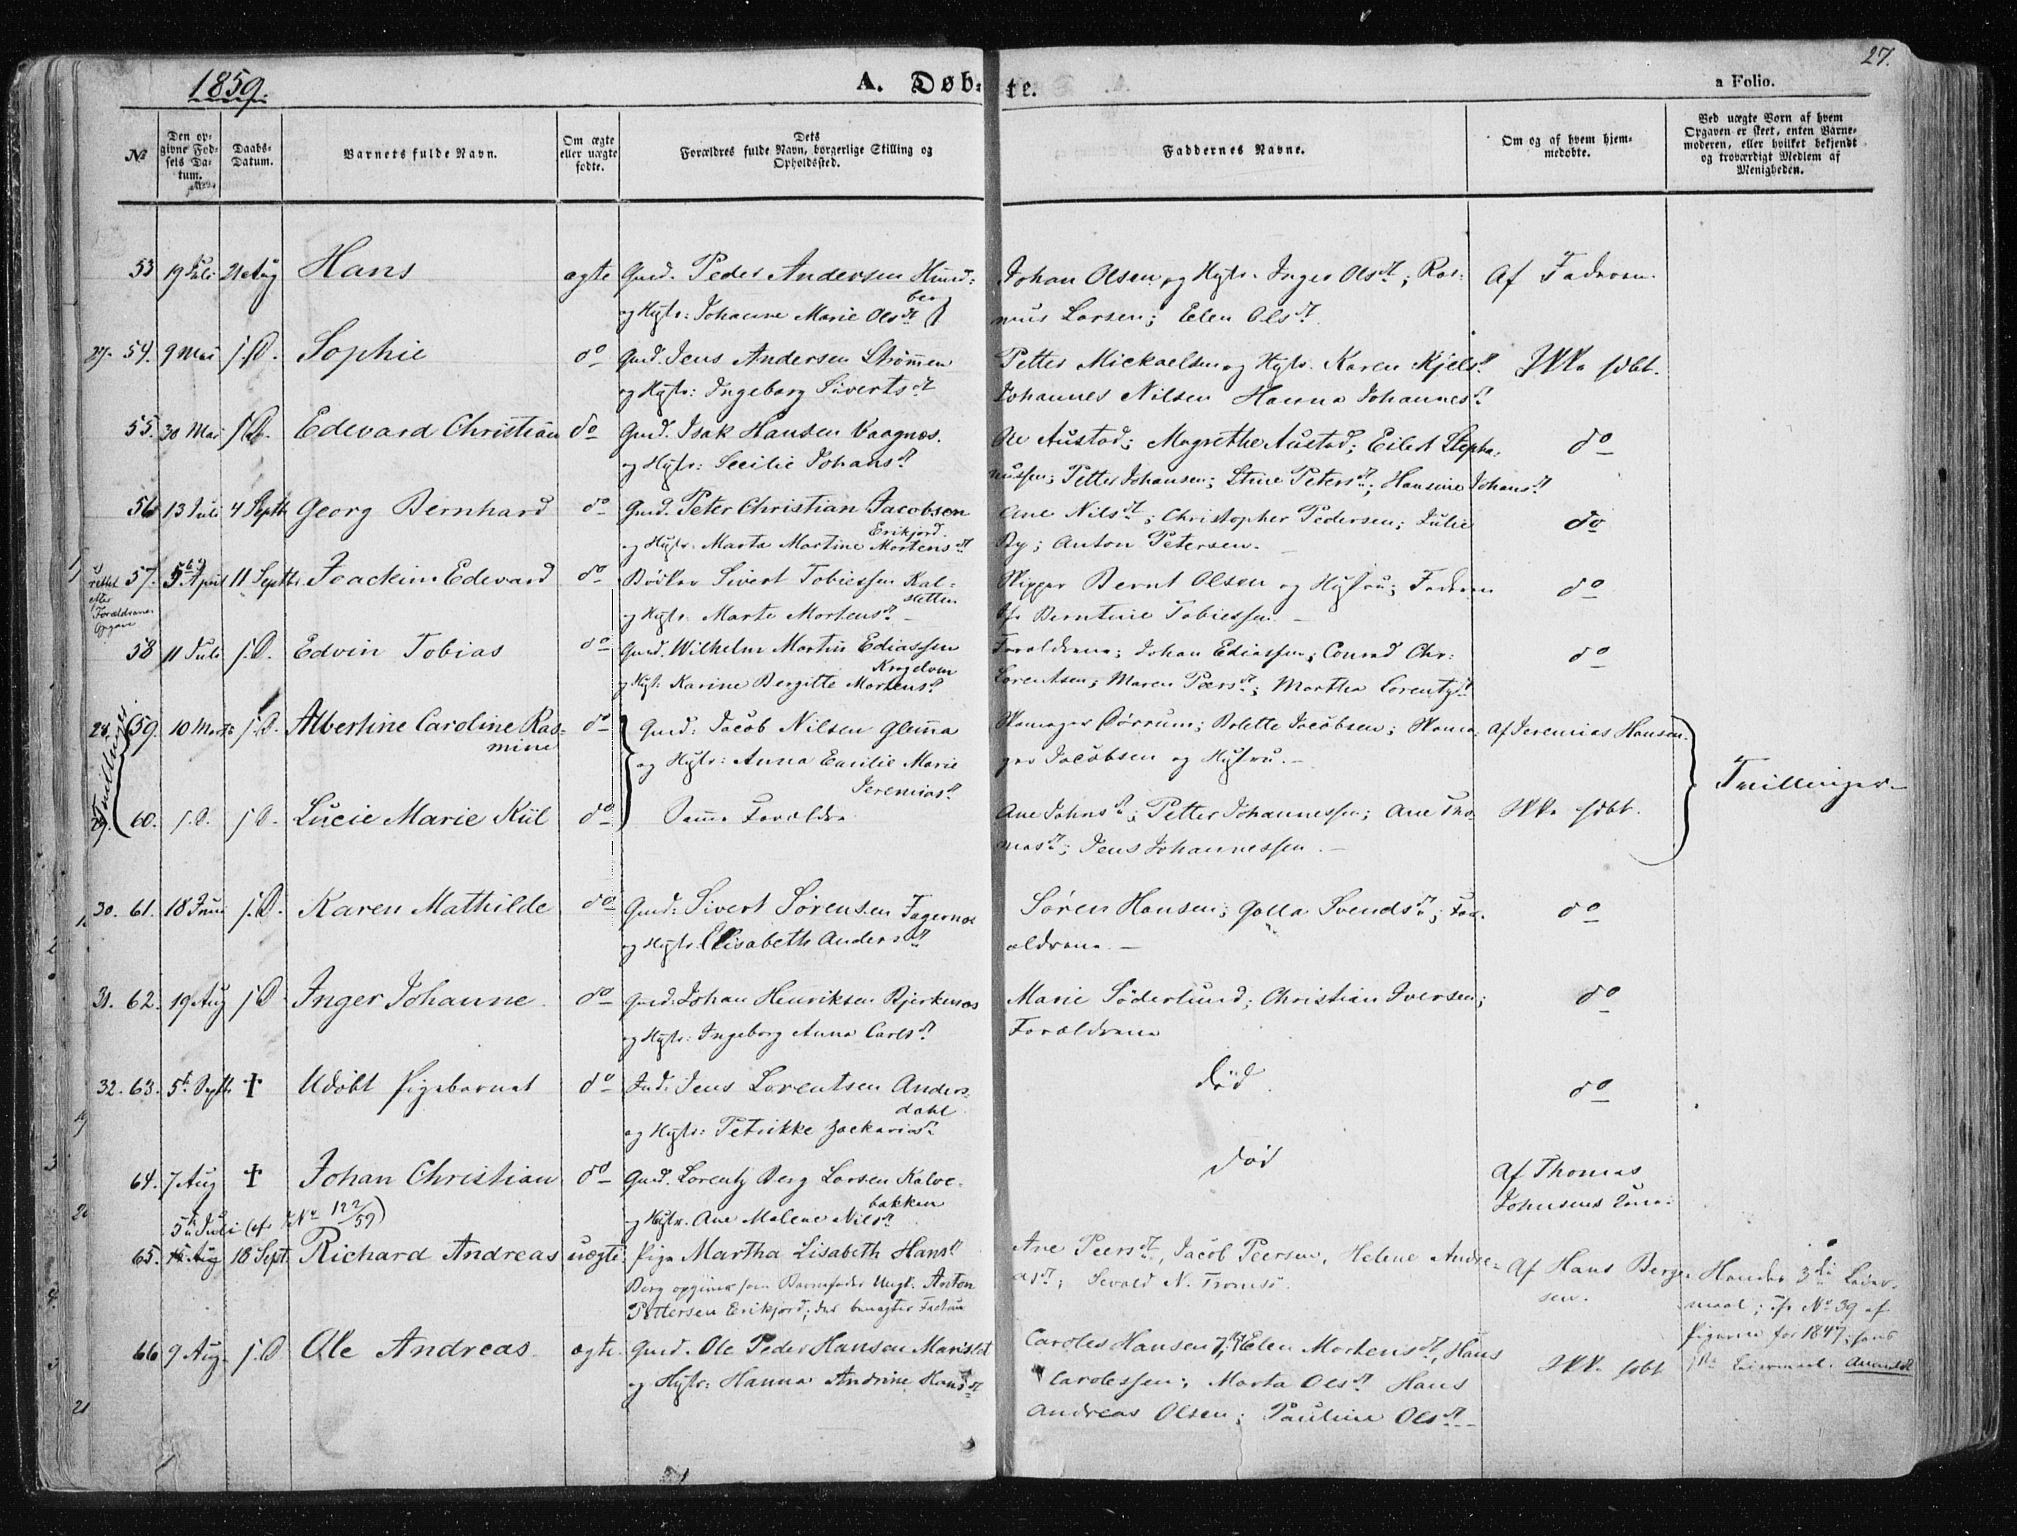 27.
1859.
A. Døb-
te.
a Folio.
No
Den op-
givne Fød-
sels Da-
tum.
Daabs-
Datum.
Barnets fulde Navn.
Om ægte
eller uægte
fødte.
Dets
Forældres fulde Navn, borgerlige Stilling og
Opholdssted.
Faddernes Navne.
Om og af hvem hjem-
medøbte.
Ved uægte Børn af hvem
Opgaven er skeet, enten Barne-
moderen, eller hvilket bekjendt
og troværdigt Medlem af
Menigheden.
53 19 Juli 21 Aug Hans ægte Gmd. Peder Andersen Hund-
berg
og Hstr: Johanne Marie Olsdt
Johan Olsen og Hstr. Inger Olsdt; Ras-
mus Larsen; Elen Olsdt.
Af Faderen.
27. 54. 9 Mai s.D. Sophie do Gmd. Jens Andersen Strømen
og Hstr: Ingeborg Sivertsdt
Petter Mickaelsen og Hstr. Karen Kjelsdt
Johannes Nilsen Hanna Johannesdt.
Ikke hdbt.
55. 30 Mai s.D. Edevard Christian do Gmd. Isak Hansen Vaagnæs.
og Hstr: Secilie Johansdt.
Ole Austad; Magrethe Austad; Eilert Stepha-
nussen; Petter Johansen; Stine Petersdt; Hansine Johansdt
do
56 13 Juli 4 Septb Georg Bernhard do Gmd. Peter Christian Jacobsen
Erikjord.
og Hstr: Marta Martine Mortensdt
Ane Nilsdt; Christopher Pedersen; Julie
By; Anton Petersen.
do
57. 5 April 11 Septbr Joackim Edevard do Sivert Tobiessen Kal-
sletten
og Hstr: Marte Mortensdt.
rettet
efter
Forældrenes
Opgave
Skipper Bernt Olsen og Hustru; Faderen
Jfr Berntine Tobiessen
do
58 11 Juli s.D. Edvin Tobias do Gmd. Wilhelm Martin Ediassen
og Hstr: Karine Bergitte Mortensdt
Forældrene; Johan Ediassen; Conrad Chr.
Lorentsen; Maren Peersdt; Martha Lorentzdt
do
Tvillinger
28. 59. 10 Marts s.D. Albertine Caroline Ras-
mine
do Gmd. Jacob Nilsen Glima
og Hstr: Anna Emilie Marie
Jeremiasdt
Bolette Jacobsen;
Jacobsen og Hustru.
Af Jeremias Hansen.
Tvillinger
29. 60. s.D. s.D. Lucie Marie Kiil do Same Forældre
Ane Johnsdt; Petter Johannessen; Ane Tho-
masdt; Jens Johannessen.
Ikke hdbt.
30. 61. 18 Juni s.D. Karen Mathilde do Gmd: Sivert Sørensen Fagernæs
og Hstr. Elisabeth Andersdt
Søren Hansen; Golla Svendsdt; For-
ældrene.
do
31. 62. 19 Aug s.D Inger Johanne do Gmd: Johan Henriksen Bjerkenæs
og Hstr: Ingeborg Anna Carlsdt.
Marie Söderlund; Christian Iversen;
Forældrene
do
32. 63. 5te Septb † Udøbt Pigebarnet do Ind: Jens Lorentsen Anders-
dahl
og Hstr: Petrikke Zackariasdt
død.
do
64. 7 Aug † Johan Christian do Gmd. Lorentz Berg Larsen Kalve-
bakken
og Hstr. Ane Malene Nilsdt
død
Af Thomas
Johnsens Kone.
5te Juli (cfr No 122/59)
65. 15 Aug 18 Sept. Richard Andreas uægte Pige Martha Lisabeth Hansdt
Berg opgiver som Barnefader Ungk. Anton
Pettersen Erikjord; der benægter Factum
Ane Peersdt, Jacob Peersen, Helene Andre-
asdt; Sevald N. Tromsö.
Af Hans Berge-
sen.
Hendes 3die Leier-
maal; cfr No 39 af
Pigerne for 1847; hans
1ste Leiermaal. Anmeldt
66 9 Aug. s.D Ole Andreas ægte. Gmd. Ole Peder Hansen Marislet
og Hstr: Hanna Andrine Hansdt
Caroles Hansen, Elen Mortensdt, Hans
Carolessen; Marta Olsdt Hans
Andreas Olsen; Pauline Olsdt
Ikke hdbt